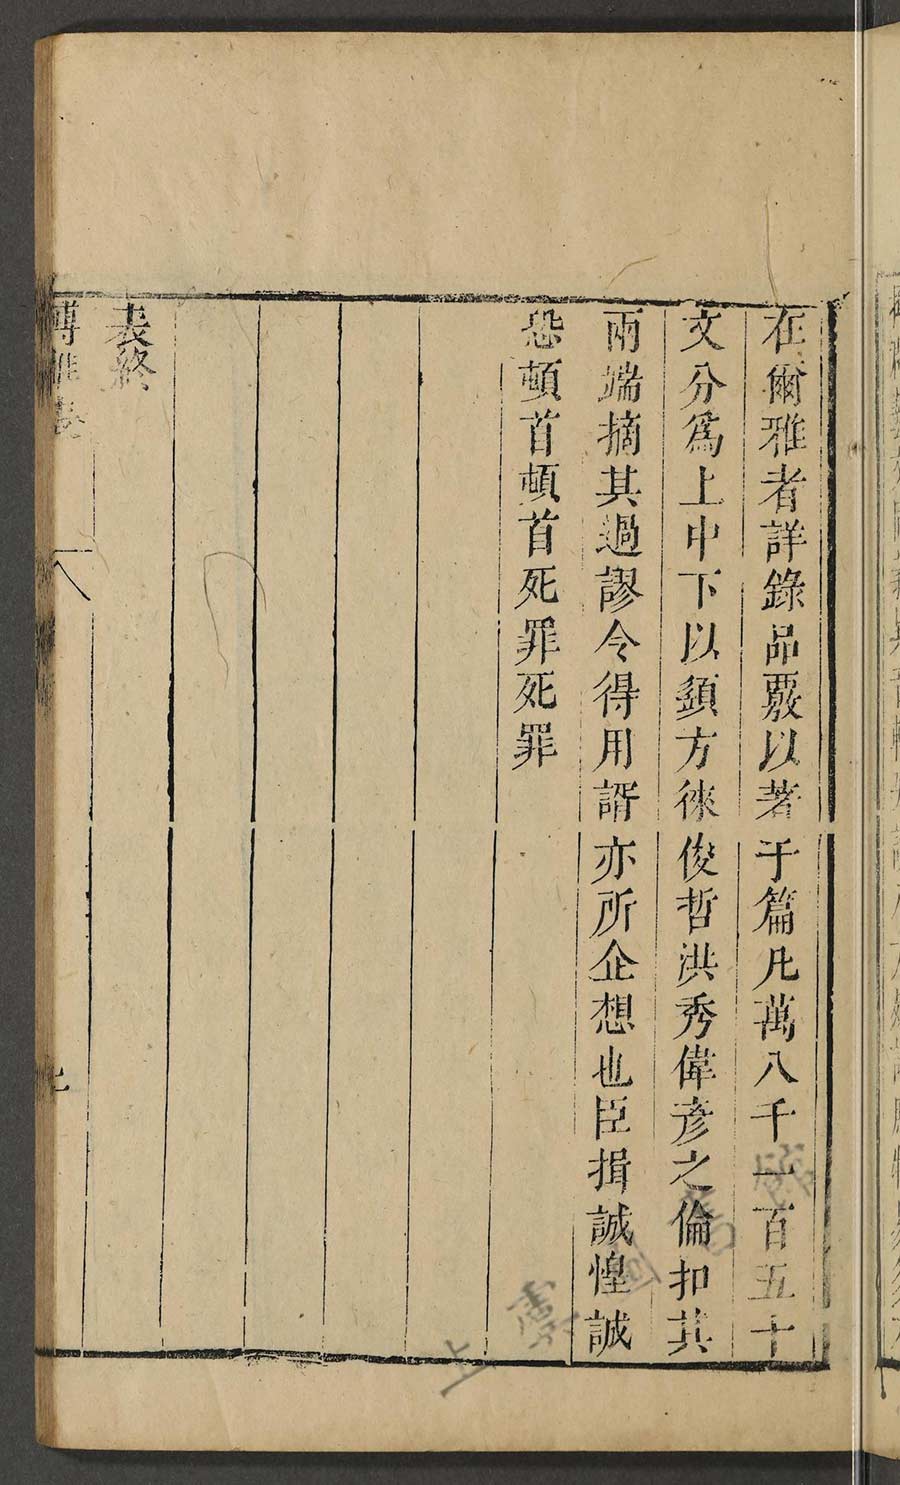 在爾雅者詳錄品覈以著于篇凡萬八千一百五十
文分爲上中下以顉方徠俊哲洪秀偉彥之倫扣其
兩端摘其過謬令得用諝亦所企想也臣揖誠惶誠
恐頓首頓首死罪死罪
表終
博雅表
八